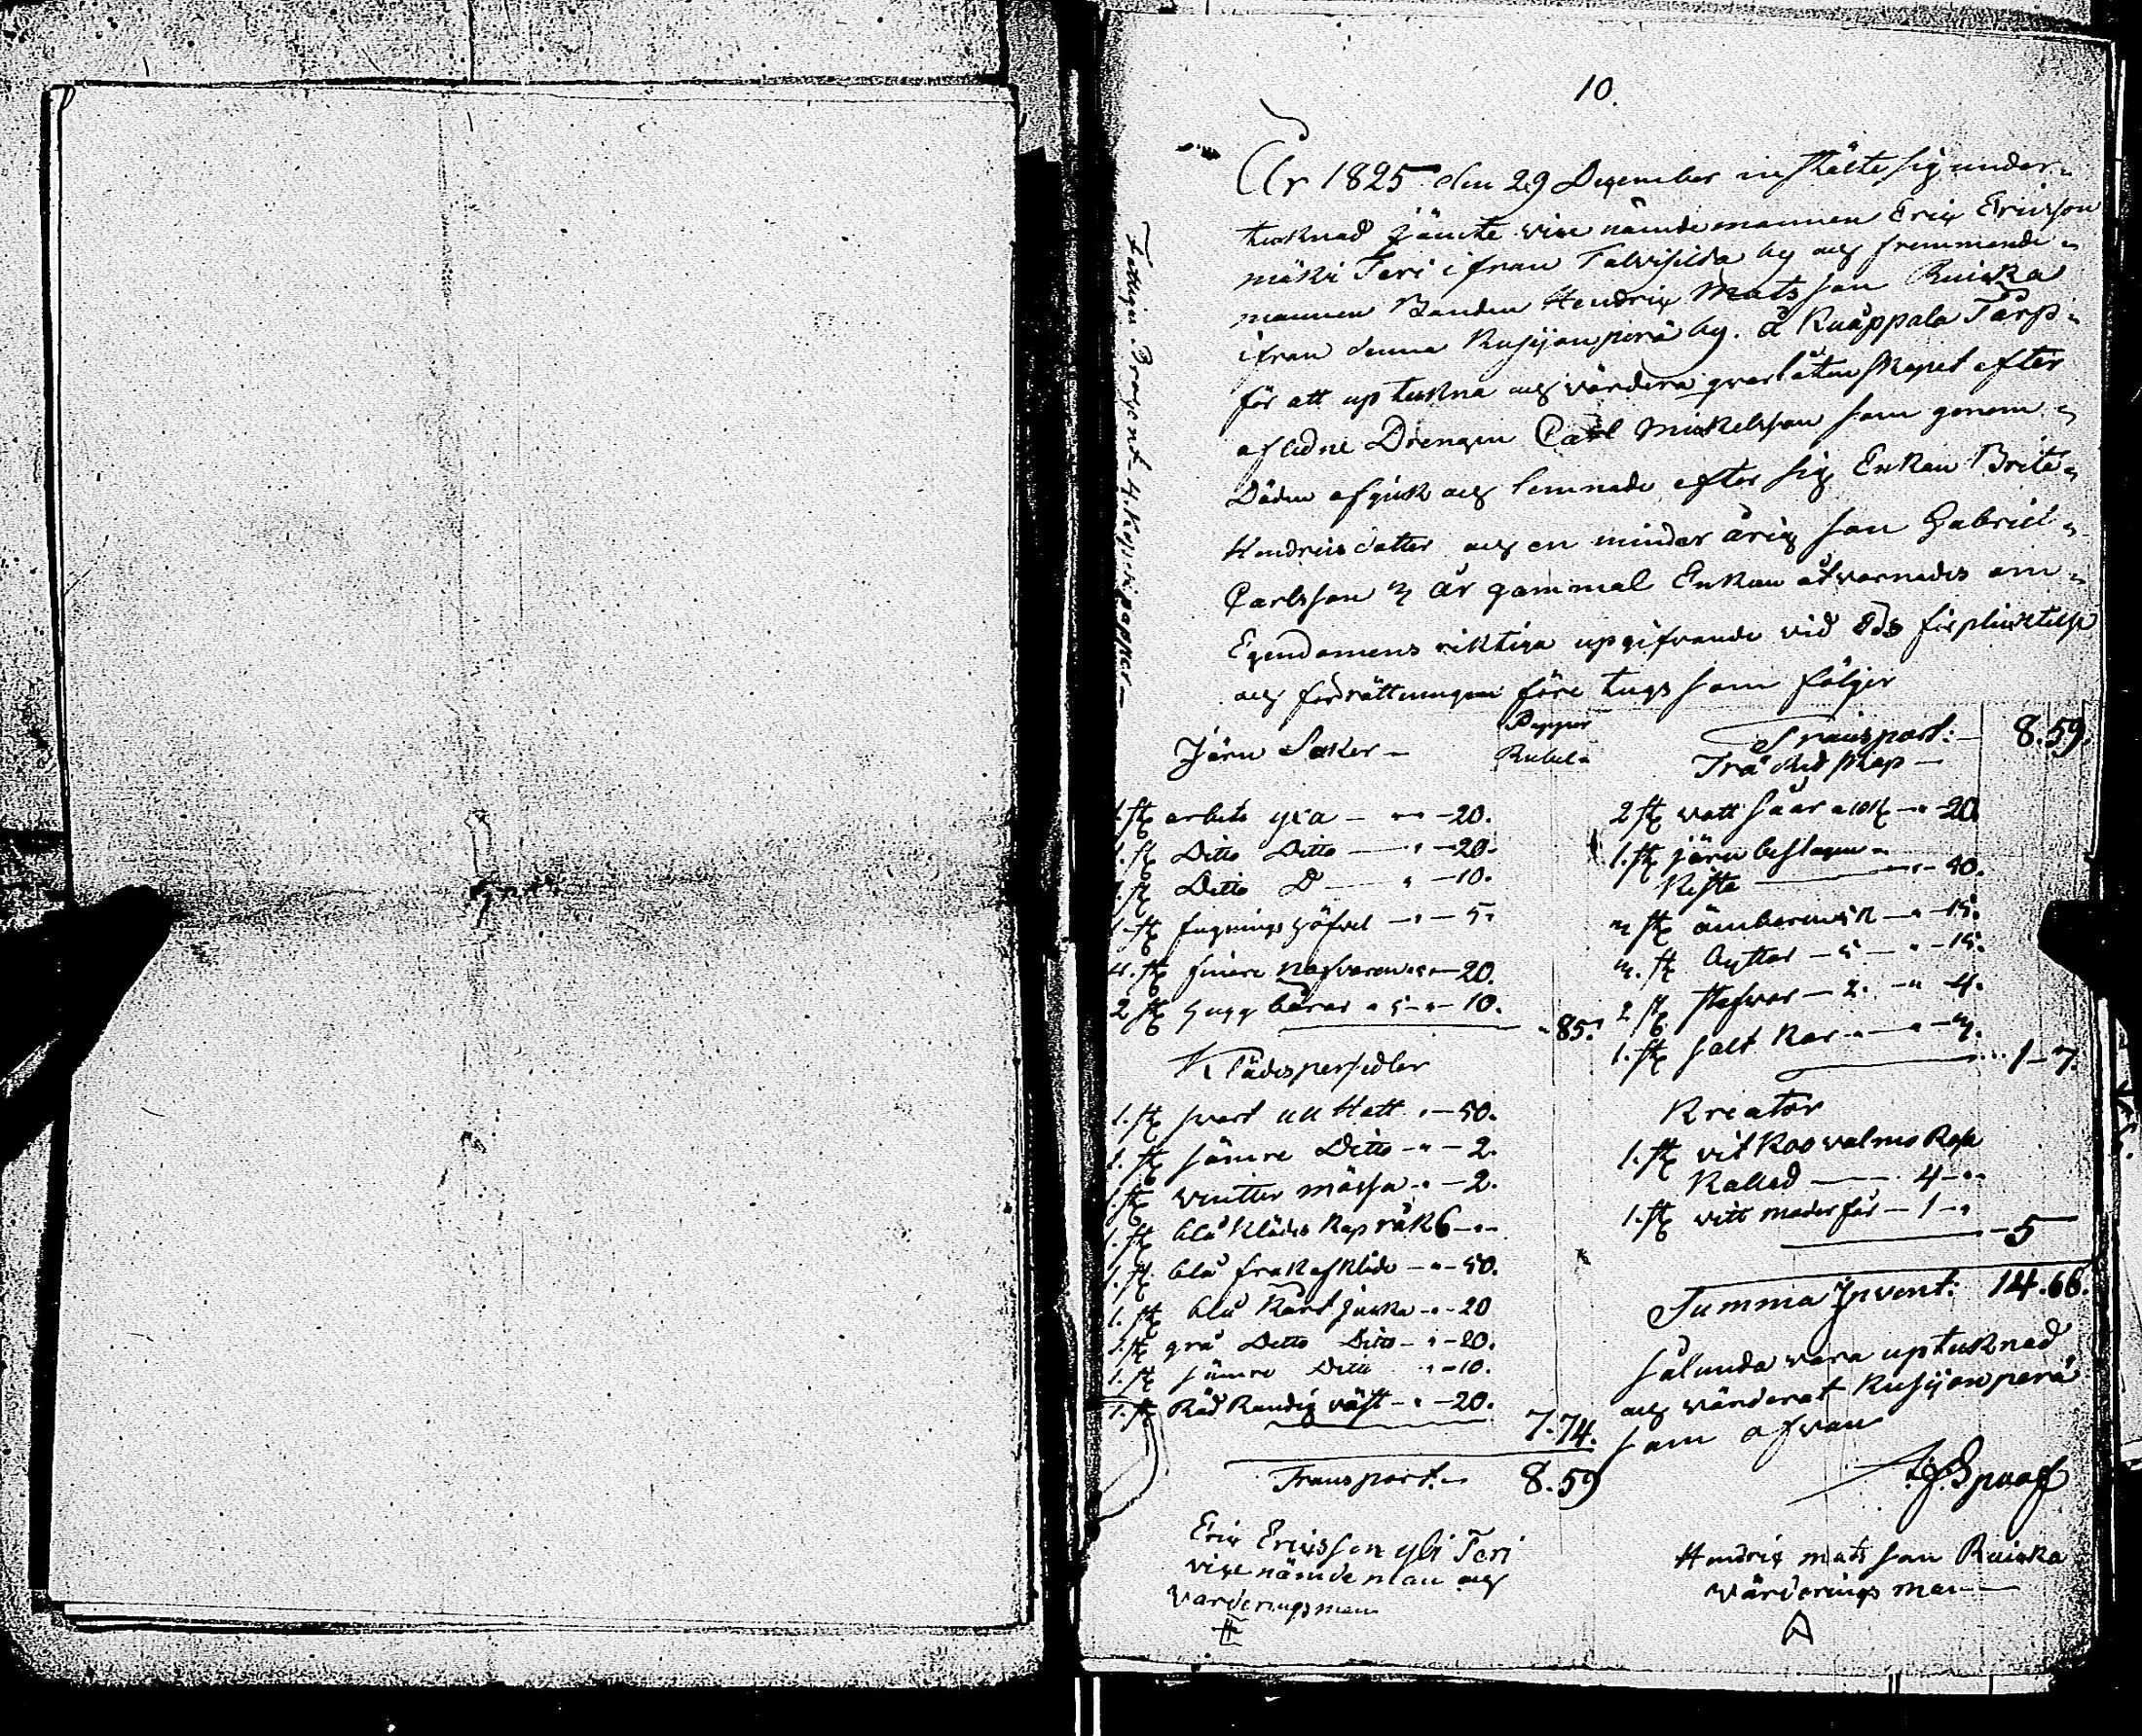 10.
År 1825 den 29 December instälte sig under-
tecknad jämte vice nämndemannen Eric Ericsson
mäki Teri ifrån Talvisilda by och fremmande
mannen Bonden Hendric Matsson Ruiska
ifrån denna Kusijonperä by. å Knäppala Tårp
för att upteckna och värdera qvarlåtenskapet efter
aflidne Drengen Carl Mickelsson som genom
Döden afgick och lemnade efter sig Enkan Brita
Hendricsdotter och en minder årig son Gabriel
Carlsson 3 år gammal Enkan åtvarnades om
Egendomens riktiga upgifvande vid Eds förplicktelse
och förrättningen före togs som följer
Fattiges Procent 4. Kop: papper
Papper
Järn Saker - Rubel
1. st arbets yxa - 20.
1. st Ditto Ditto - 20.
1. st Ditto D - 10.
1. st fugnings höfvel - 5.
4. st finare nafvaren - 20.
2 st hugg bårar 5 - 10.
85.
Klädespersedlar
1. st svart ull Hatt - 50.
1. st sämre Ditto - 2.
1. st vintter mössa - 2.
1. st blå Klädes Kap råk 6 -
1. st blå frak af Kläde - 50.
1. st blå Kort jacka - 20
1. st grå Ditto Ditto - 20.
1. st sämre Ditto - 10.
1. st Råd Randig väst - 20.
7.74.
Transport. 8.59
Transport: 8.59.
Trä Kedskap
2 st vatt såar a 10 K - 20.
1. st järn beslagen
Kista - 40.
3 st ämbaren 5 K - 15.
3. st byttor 5 - 15.
2 st stefvor - 2. - 4.
1. st salt Kar - 3.
1 - 7.
Kreatur
1. st vit Koo valmo Kok
Kallad - 4 -
1. st vitt moder får - 1 -
- 5
Summa Invent: 14.66.
Sålunda vara uptecknad
och värderat Kusijonperä
som ofvan
Spoof
Eric Ericsson yli Teri
vice nämndeman och
Värderingsman
Hendric mats son Ruiska
Värderings man